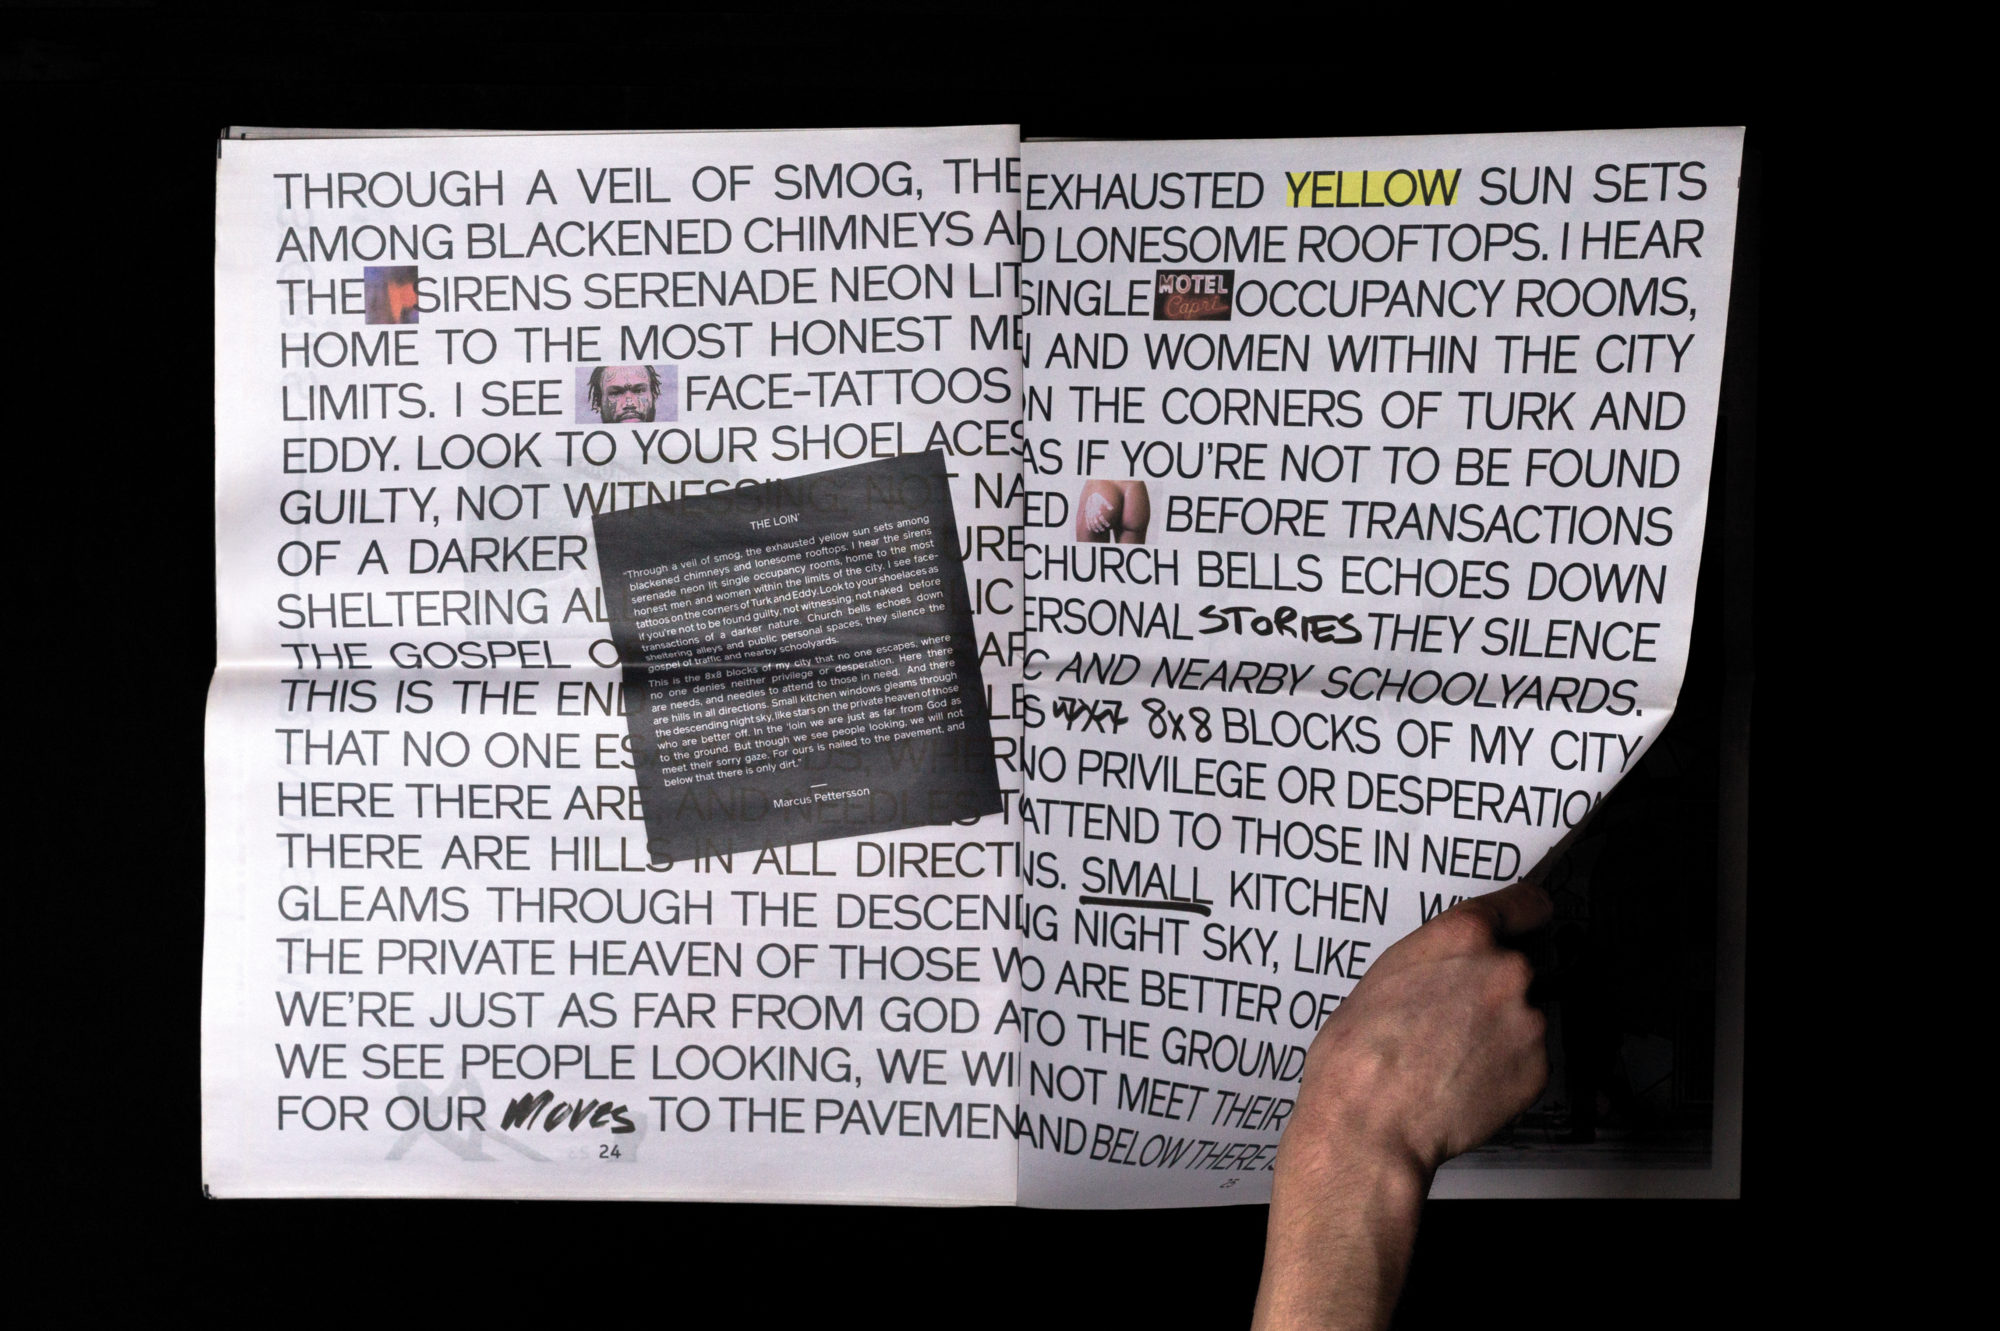 THROUGH A VEIL OF SMOG, THE EXHAUSTED YELLOW SUN SETS
AMONG BLACKENED CHIMNEYS AND LONESOME ROOFTOPS. I HEAR
THE SIRENS SERENADE NEON LIT SINGLE MOTEL Capri OCCUPANCY ROOMS,
HOME TO THE MOST HONEST MEN AND WOMEN WITHIN THE CITY
LIMITS. I SEE FACE-TATTOOS ON THE CORNERS OF TURK AND
EDDY. LOOK TO YOUR SHOELACES AS IF YOU'RE NOT TO BE FOUND
GUILTY, NOT WITNESSING, NOT NAKED BEFORE TRANSACTIONS
OF A DARKER CHURCH BELLS ECHOES DOWN
SHELTERING PERSONAL STORIES THEY SILENCE
THE GOSPEL AND NEARBY SCHOOLYARDS.
THIS IS THE 7X7 8x8 BLOCKS OF MY CITY
THAT NO ONE WHERE NO PRIVILEGE OR DESPERATION
HERE THERE ARE, AND NEEDLES TO ATTEND TO THOSE IN NEED.
THERE ARE HILLS IN ALL DIRECTIONS. SMALL KITCHEN
GLEAMS THROUGH THE DESCENDING NIGHT SKY, LIKE
THE PRIVATE HEAVEN OF THOSE WHO ARE BETTER
WE'RE JUST AS FAR FROM GOD AS TO THE GROUND.
WE SEE PEOPLE LOOKING, WE WILL NOT MEET THEIR
FOR OUR Moves TO THE PAVEMENT AND BELOW THERE IS
24
25
THE LOIN'
"Through a veil of smog, the exhausted yellow sun sets among
blackened chimneys and lonesome rooftops. I hear the sirens
serenade neon lit single occupancy rooms, home to the most
honest men and women within the limits of the city. I see face-
tattoos on the corners of Turk and Eddy. Look to your shoelaces as
if you're not to be found guilty, not witnessing, not naked before
transactions of a darker nature. Church bells echoes down
sheltering alleys and public personal spaces, they silence the
gospel of traffic and nearby schoolyards.
This is the 8x8 blocks of my city that no one escapes, where
no one denies neither privilege or desperation. Here there
are needs, and needles to attend to those in need. And there
are hills in all directions. Small kitchen windows gleams through
the descending night sky, like stars on the private heaven of those
who are better off. In the 'loin we are just as far from God as
to the ground. But though we see people looking, we will not
meet their sorry gaze. For ours is nailed to the pavement, and
below that there is only dirt."
Marcus Pettersson